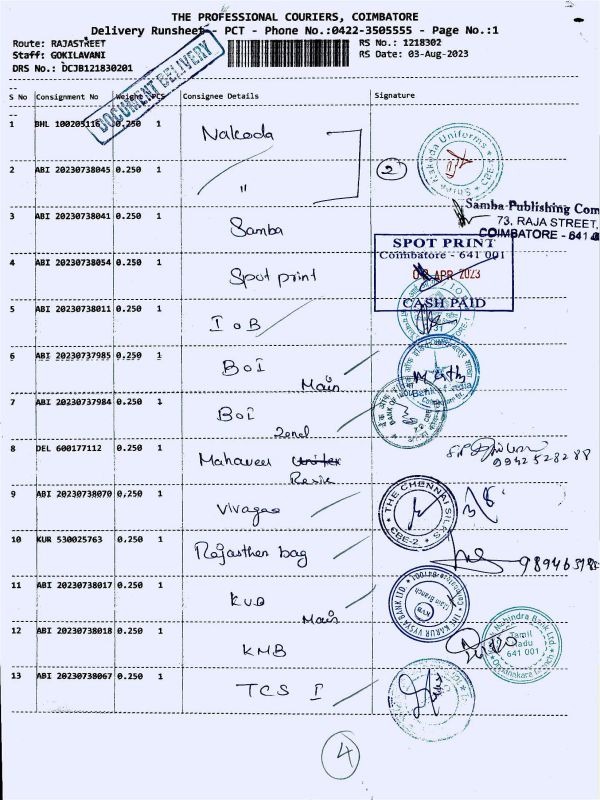 THE PROFESSIONAL COURIERS, COIMBATORE
Delivery Runsheet - PCT - Phone No.:0422-3505555 - Page No.:1
Route: RAJASTREET
RS No.: 1218302
Staff: GOKILAVANI
RS Date: 03-Aug-2023
DRS No.: DCJB121830201
DOCUMENT DELIVERY
S No Consignment No Weight PCS Consignee Details Signature
1 BHL 100205116 0.250 1 Nakoda
2 ABI 20230738045 0.250 1 "
2
Samba Publishing Com
73, RAJA STREET,
COIMBATORE - 641
3 ABI 20230738041 0.250 1 Samba
SPOT PRINT
Coimbatore - 641 001
APR 2023
CASH PAID
4 ABI 20230738054 0.250 1 Spot print
5 ABI 20230738011 0.250 1 IOB
6 ABI 20230737985 0.250 1 BOI
Main
7 ABI 20230737984 0.250 1 BOI
Zonal
8 DEL 600177112 0.250 1 Mahaveer
9942528288
9 ABI 20230738070 0.250 1 Vivagaa
THE CHENNAI SILKS
CBE-2
10 KUR 530025763 0.250 1 Rajasthan bag
11 ABI 20230738017 0.250 1 KVB
Main
THE KARUR VYSYA BANK LTD
KVB
12 ABI 20230738018 0.250 1 KMB
Mahindra Bank Ltd.
Tamil
Nadu
641 001
13 ABI 20230738067 0.250 1 TCS I
4